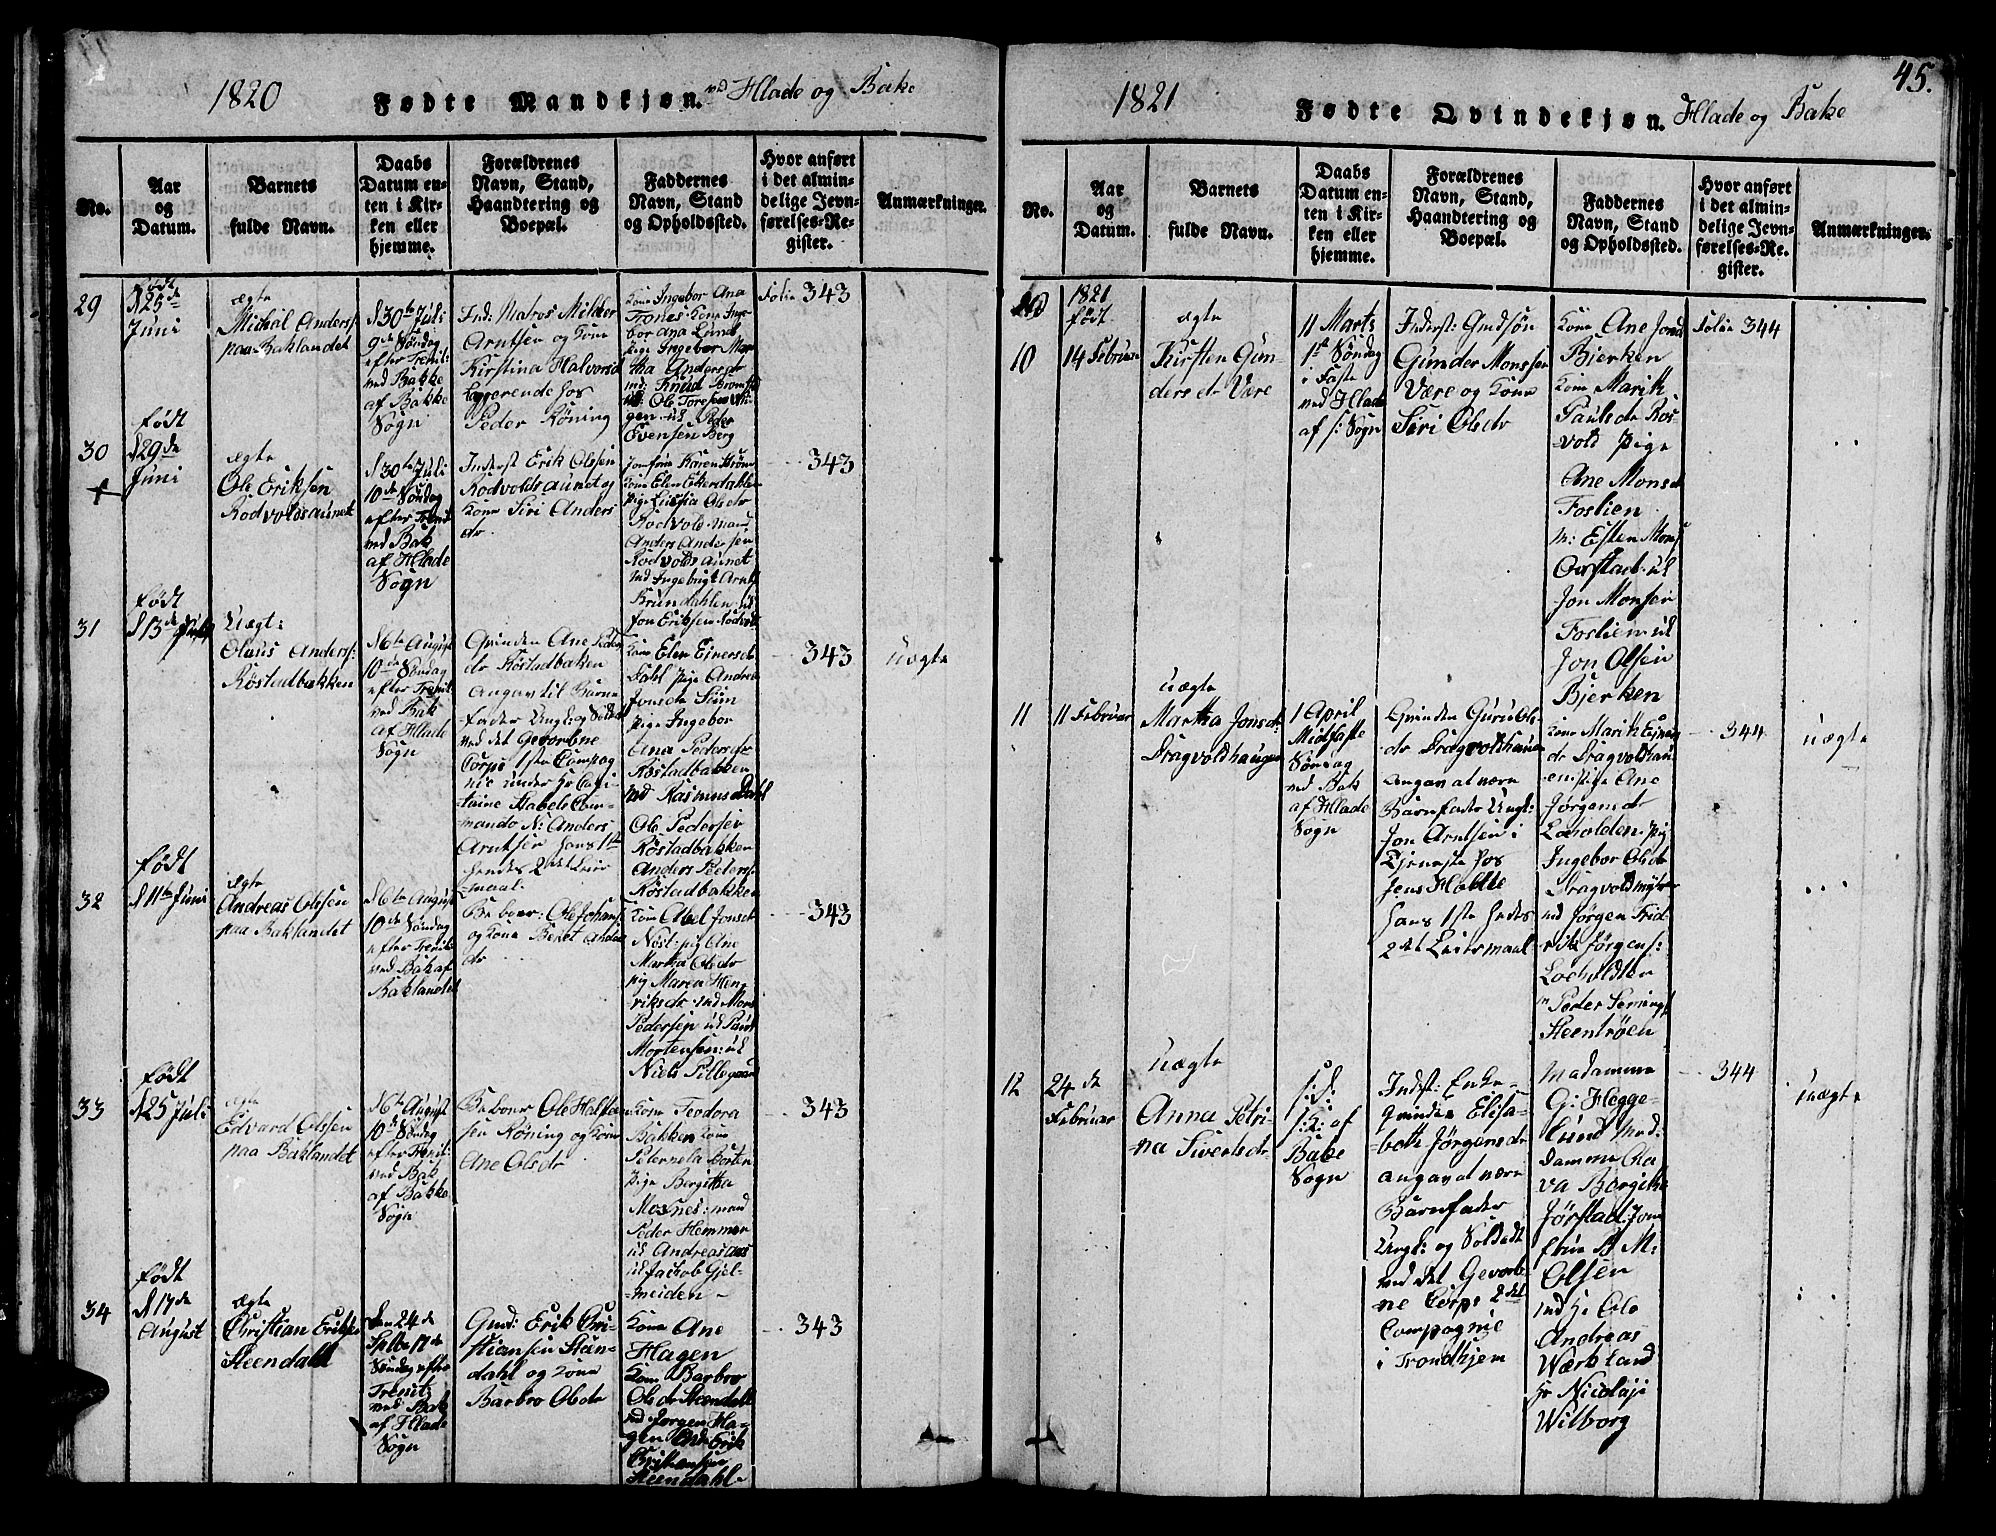 1820 Fødte Mandkjøn. ved Hlade og Bake
No.
Aar
og
Datum.
Barnets
fulde Navn.
Daabs
Datum en-
ten i Kir-
ken eller
hjemme.
Forældrenes
Navn, Stand,
Haandtering og
Boepæl.
Faddernes
Navn, Stand
og Opholdssted.
Hvor anført
i det almin-
delige Jevn-
førelses-Re-
gister.
Anmærkninger.
29
født
d 25de
Juni
ægte
Michal Anders:
paa Baklandet
d 30te Juli
9de Søndag
efter Trenit:
ved Bakke
af Bakke
Sogn
Ind: Matros Milder
Arntsen og Kone
Kirstina Halvorsd
logerende hos
Peder Røning
Kone Ingebor Ana
Trones Kone Inge-
bor Ana Lund
Pige Ingebor Mar-
tha Andersdr
ind: Knud
Ole Toresen
gen uk Peder
Evensen Berg
Folio 343
30
født
d 29de
Juni
ægte
Ole Eriksen
Rodvoldsaunet
d 30te Juli
10de Søndag
efter Trenit
ved Bak
af Hlade
Sogn
Inderst Erik Olssen
Rodvoldsaunet og
Kone Siri Anders
dr
Jomfrue Karen
Kone Elen Ekerdahlen
Pige Olsdr
Rodvold man
Anders Andersen
Rodvoldsaunet
ind Ingebrigt Arntz
Brundahlen uk
Jon Eriksen Rodvold
343
31
født
d 13de
Uægt:
Olaus Anders:
Røstadbakken
d 6te August
10de Søndag
efter Trenit:
ved Bak
af Hlade
Sogn
Qvinden Ane Peders
dr Røstadbakken
Angav til Barne
fader Ungk: og Soldat
ved det Gevorbne
Corps 1ste Compag
nie under Hr Capi-
taine Habels Com-
mando N: Anders
Arntsen hans 1ste
hendes 2det Leier
maal.
Kone Elen Einersdr
Dahl pige Andrea
Jonsdr Stün
Pige Ingebor
Ana Pedersdr
Røstadbakken
ind Rasmus Dahl
Ole Pedersen
Røstadbakken
Anders Peders:
Røstadbakken
343
uægte
32
født
d 11te Juni
ægte
Andreas Olssen
paa Baklandet
d 6te August
10de Søndag
efter Treni:
ved Bak af
Baklandet
Beboer: Ole Johans:
og Kone Beret Anders
dr
Kone Abel Jonsdr
Nøst: pig Ane
Martha Olsdr
pig Maren Hen-
riksdr ind Mons
Pedersen uk Paul
Mortensen: uk
Niels Pillegaard
343
33
født
d 25 Juli
ægte
Edvard Olssen
paa Baklandet
d 6te August
10de Søndag
efter Trenit:
ved Bak
af Bakke
Sogn
Beboer Ole Halfva
sen Røning og Kone
Ane Olsdr
Kone Teodora
Bakken Kone
Peternela Morten
Pige Bergitha
Mosnes: mand
Peder Hemmer
uk Andreas Aas
uk Jackob Gjel-
meiden
343
34
født
d 17de
August
ægte
Christian Eriks:
Steendahl
Den 24de
Septbr 17de
Søndag efter
Trenit:
ved Bak
af Hlade
Sogn
Gmd: Erik Chri-
stiansen Steen-
dahl og Kone
Barbro Olsdr
Kone Ane
Hagen
Kone Barbro
Olsdr Steendahl
ind Jørgen Ha-
gen Erik
Christiansen
Steendahl
343
1821 Fødte Qvindekjøn. Hlade og Bake
45.
No.
Aar
og
Datum.
Barnets
fulde Navn.
Daabs
Datum en-
ten i Kir-
ken eller
hjemme.
Forældrenes
Navn, Stand,
Haandtering og
Boepæl.
Faddernes
Navn, Stand
og Opholdssted.
Hvor anført
i det almin-
delige Jevn-
førelses-Re-
gister.
Anmærkninger.
10
1821
født
14 Februar
ægte
Kirsten Gun
dersdr Være
11 Marts
1ste Søndag
i Faste
ved Hlade
af s: Sogn
Inderst: Gmdsøn
Gunder Monssen
Være og Kone
Siri Olsdr
Kone Ane Jonsd
Bjerken
Kone Marik
Paulsdr Ros
vold Pige
Ane Monsdr
Foslien
m: Esten Mons
Overstad. uk
Jon Monsen
Foslien uk
Jon Olsen
Bjerken
Folio 344
11
11 Februar
uægte
Martha Jonsdr
Dragvoldhaugen
1 April
Midfaste
Søndag
ved Bak
af Hlade
Sogn
Qvinden Guru Ols-
dr Dragvoldhauen
Angav at være
Barnfader Ungk:
Jon Arntsen i
Tjeneste hos
Jens Holtte
hans 1ste hendes
2det Leiermaal
Kone Marik Ejners
dr Dragvoldhau
en pige Ane
Jørgensdr
Loeholden. pig
Ingebor Olsdr
Dragvoldmyhren
ind Jørgen Frid-
rik Jørgens:
Loeholdten
m Peder
Steentrøen
344
uægte
12
24de
Februar
uægte
Anna Petri-
na Sivertsdr
s: d:
s: k: af
Bake
Sogn
Indst: Enke-
Qvinden Elisa-
beth Jørgensdr
angav at være
Barnfader
Ungk: og Soldadt
ved det Gevorb-
ne Corps 2det
Compagnie
i Trondhjem
Madamme
G: Hegge-
lund Mad:
damme Ola
va Bergithe
Jørstad: Jom
frue B M:
Olsen
ind H: Ole
Andreas
Wærkland
Hr Nicolaji
Wilborg
344
uægte